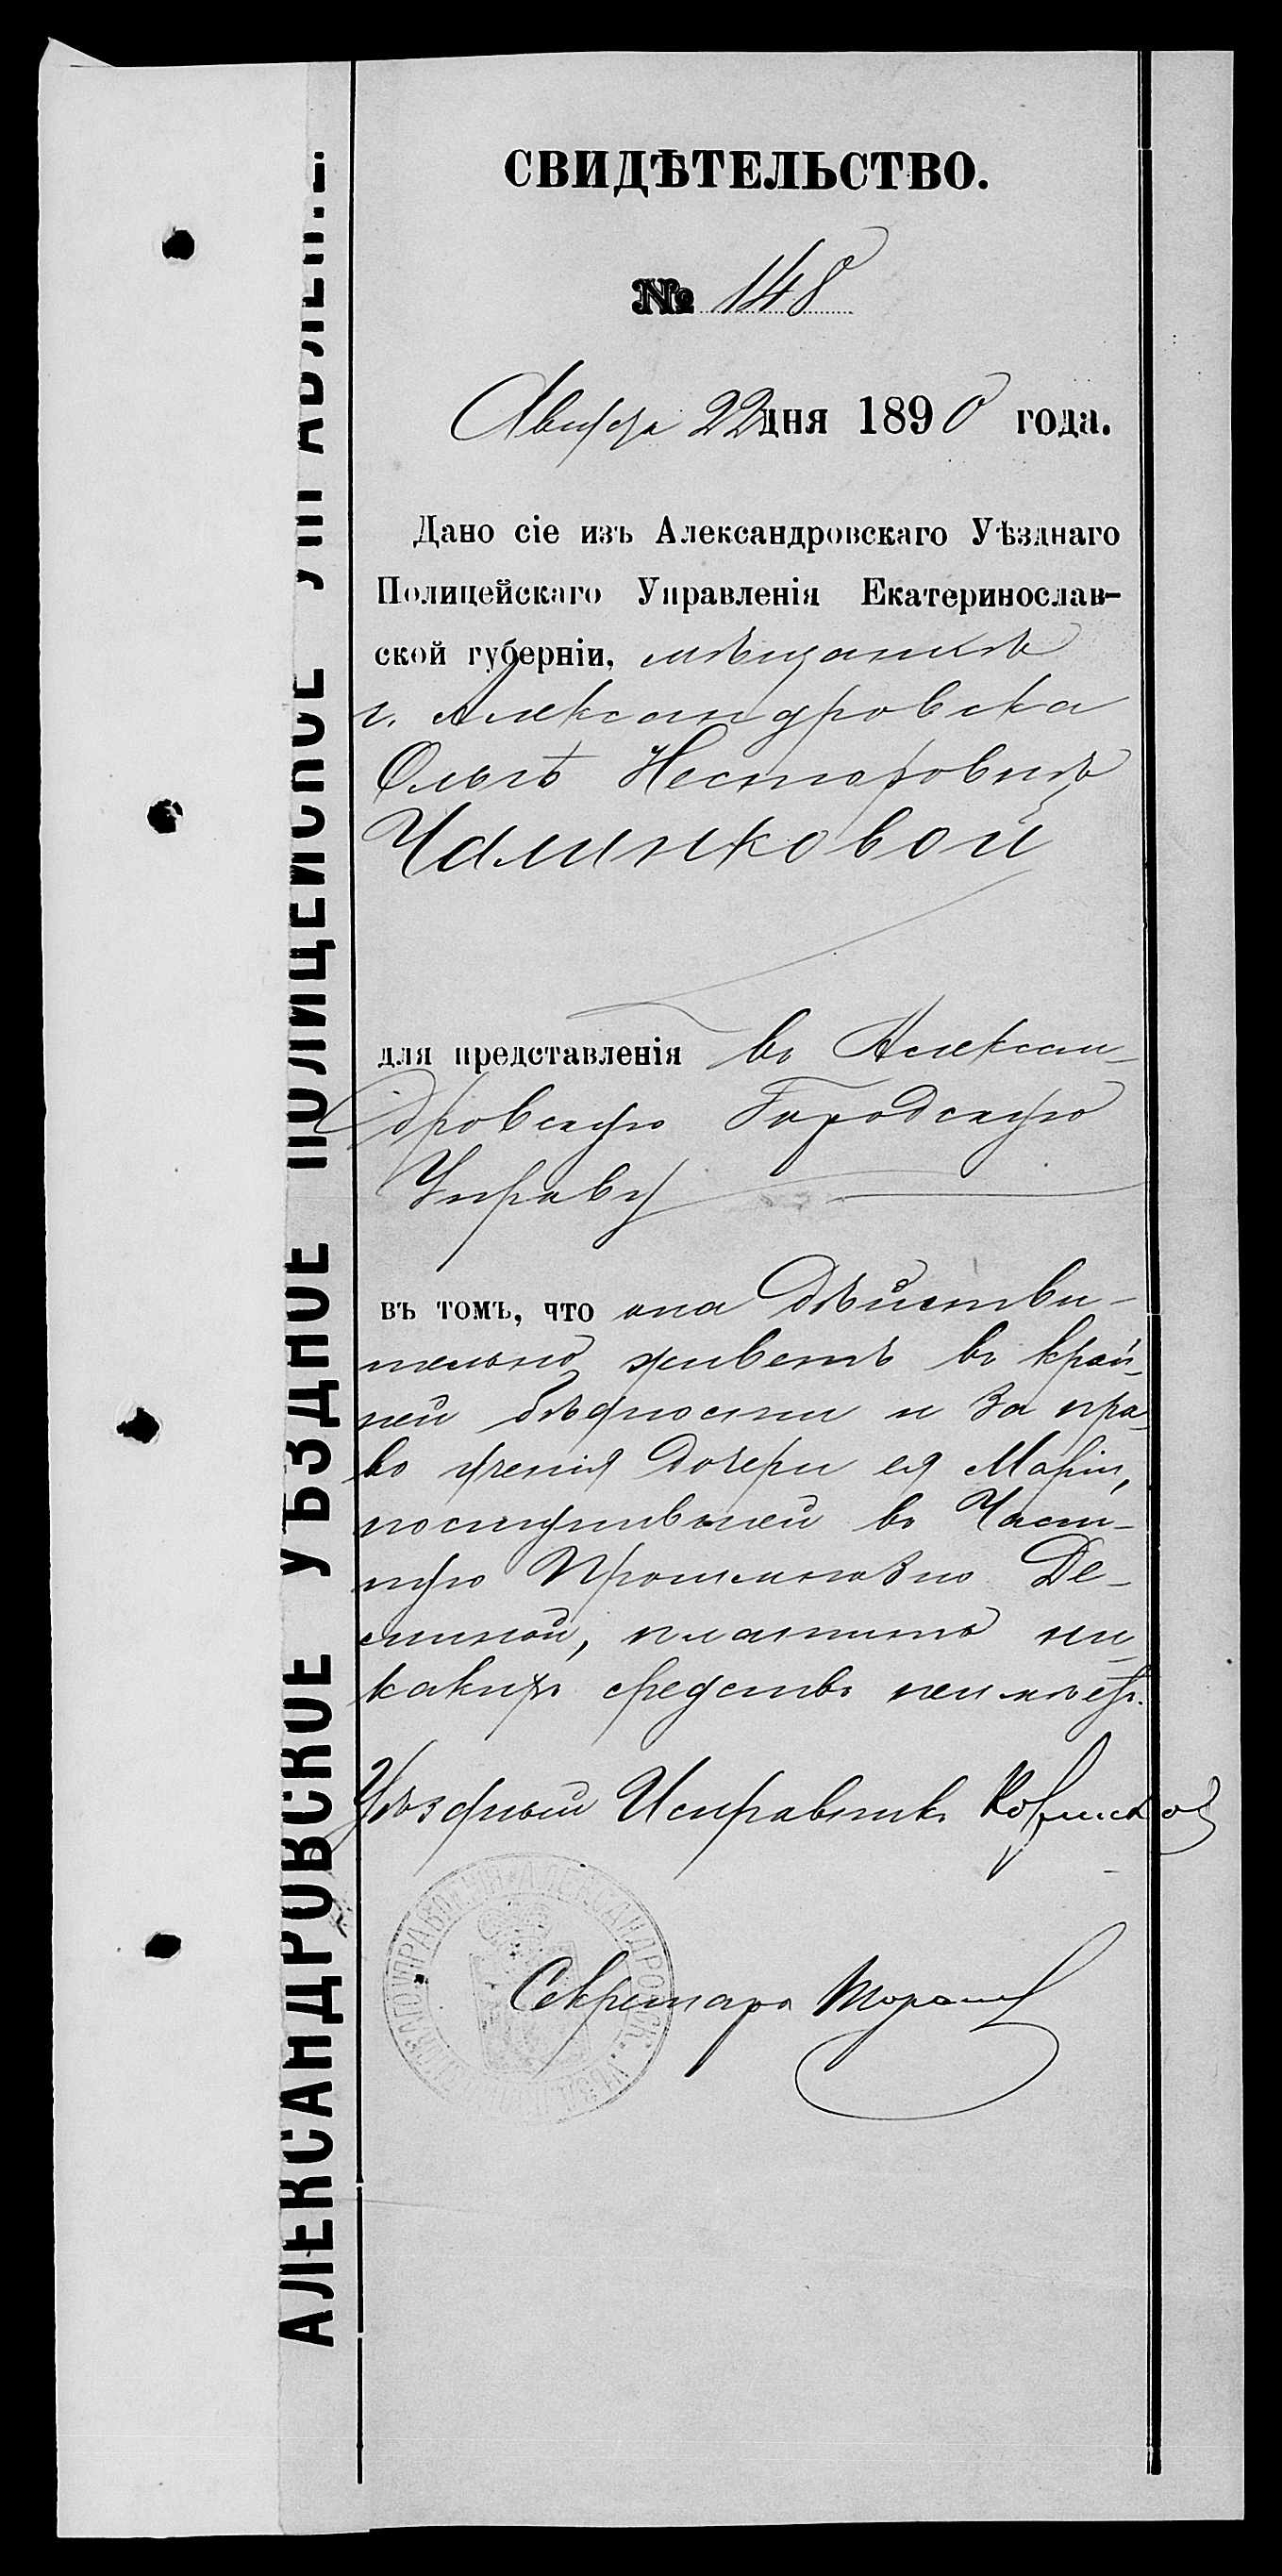 СВИДѢТЕЛЬСТВО.
№ 148
Августа 22 дня 1890 года.
Дано сіе изъ Александровскаго Уѣзднаго
Полицейскаго Управленія Екатеринослав-
ской губерніи, мѣщанкѣ
г. Александровска
Ольгѣ Несторовнѣ
Чалинковой
для представленія въ Алексан-
дровскую Городскую
Управу
въ томъ, что она дѣйстви-
тельно живетъ въ край-
ней бѣдности и за пра-
во ученія дочери ея Маріи,
поступившей въ Част-
ную Прогимназію Де-
миной, платить ни-
какихъ средствъ неимѣетъ.
Уѣздный Исправникъ
Секретарь
АЛЕКСАНДРОВСКОЕ УѢЗДНОЕ ПОЛИЦЕЙСКОЕ УПРАВЛЕНІЕ